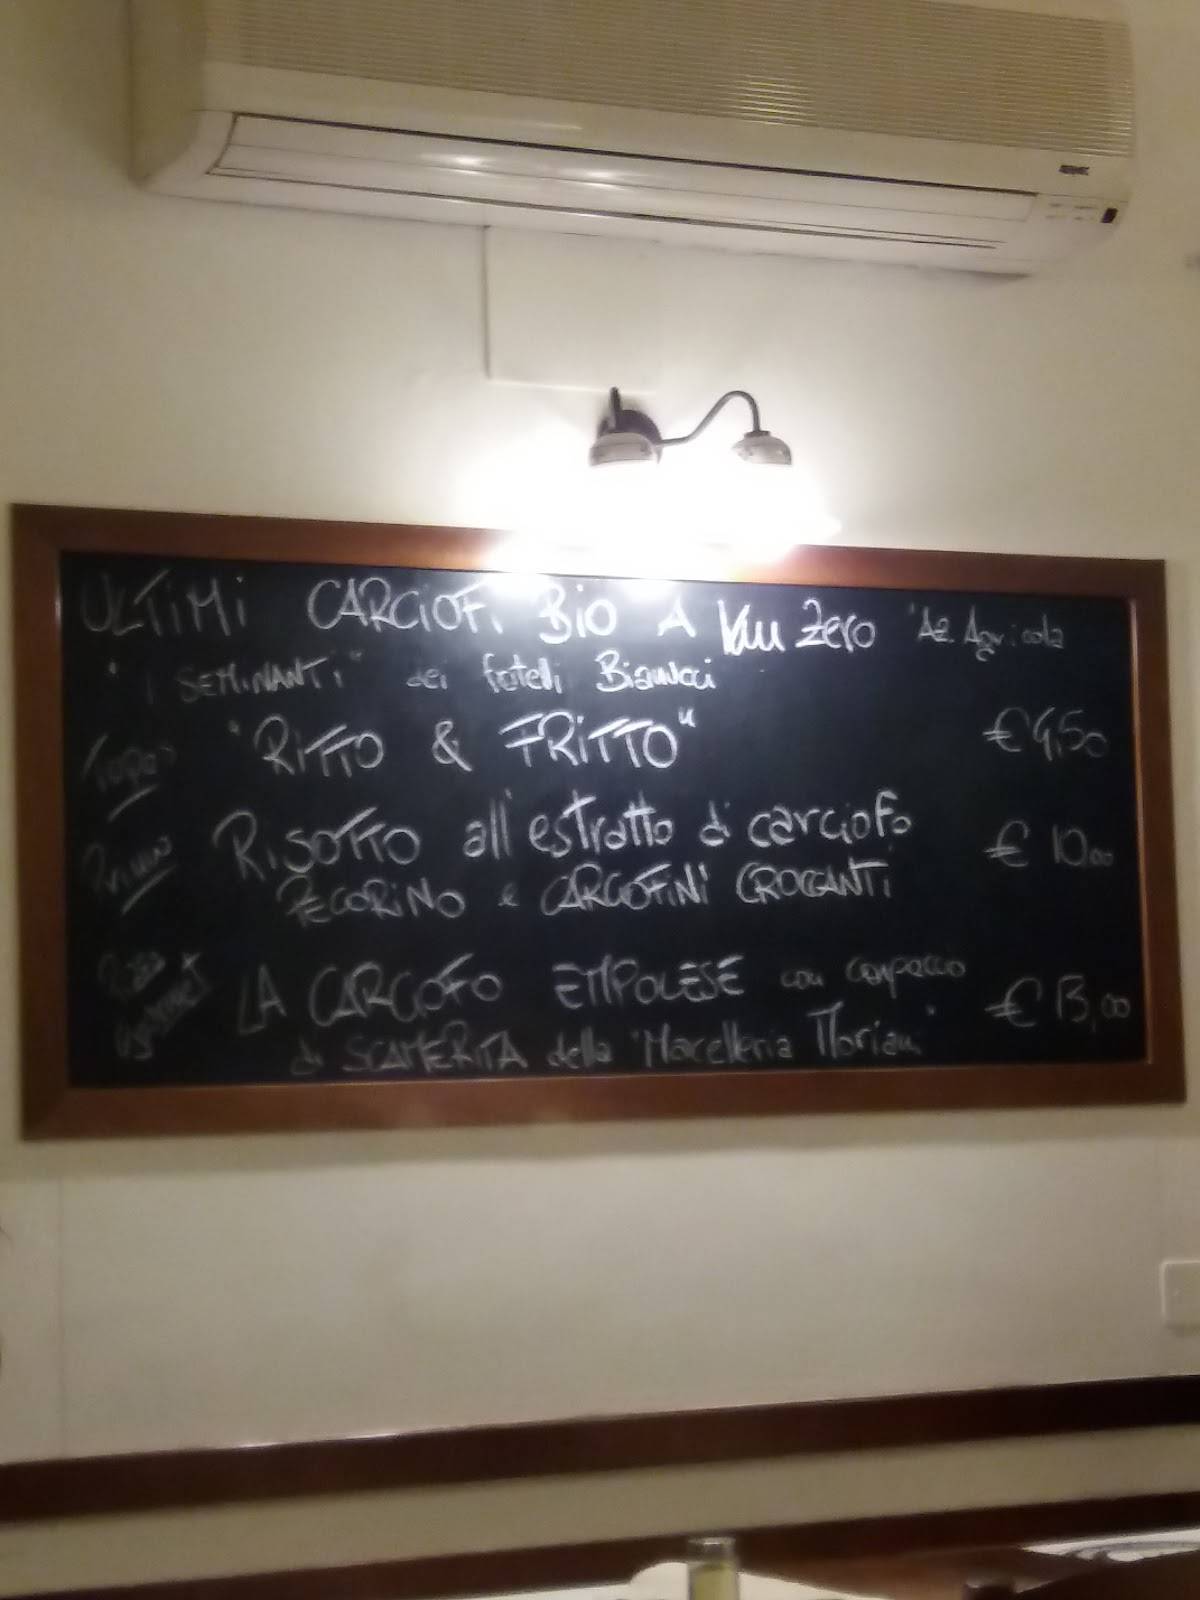 ULTIMI CARCIOFI BIO A km Zero "AZ. Agricola
"I SEMINANTI" dei fratelli Bianucci
Tapas "RITTO & FRITTO" € 4,50
Primo RISOTTO all'estratto di carciofo € 10,00
PECORINO e CARCIOFINI CROCCANTI
LA CARCIOFO EMPOLESE con carpaccio € 13,00
di SCAMERITA della "Macelleria Floriani"